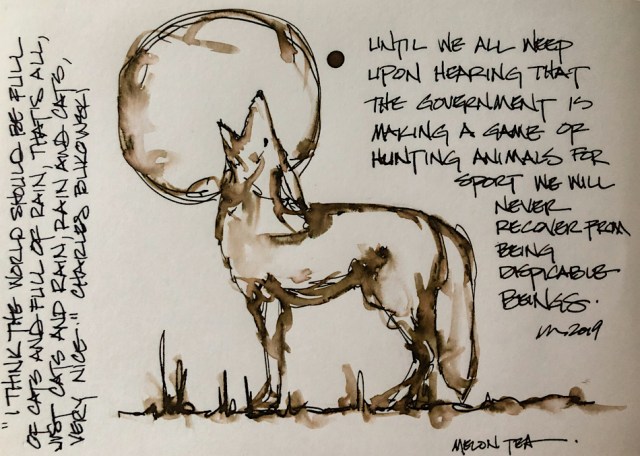 "I THINK THE WORLD SHOULD BE FULL
OF CATS AND FULL OF RAIN, THAT'S ALL,
JUST CATS AND RAIN, RAIN AND CATS,
VERY NICE." CHARLES BUKOWSKI
UNTIL WE ALL WEEP
UPON HEARING THAT
THE GOVERNMENT IS
MAKING A GAME OF
HUNTING ANIMALS FOR
SPORT WE WILL
NEVER
RECOVER FROM
BEING
DISPICABLE
BEINGS.
2019
MELON TEA.